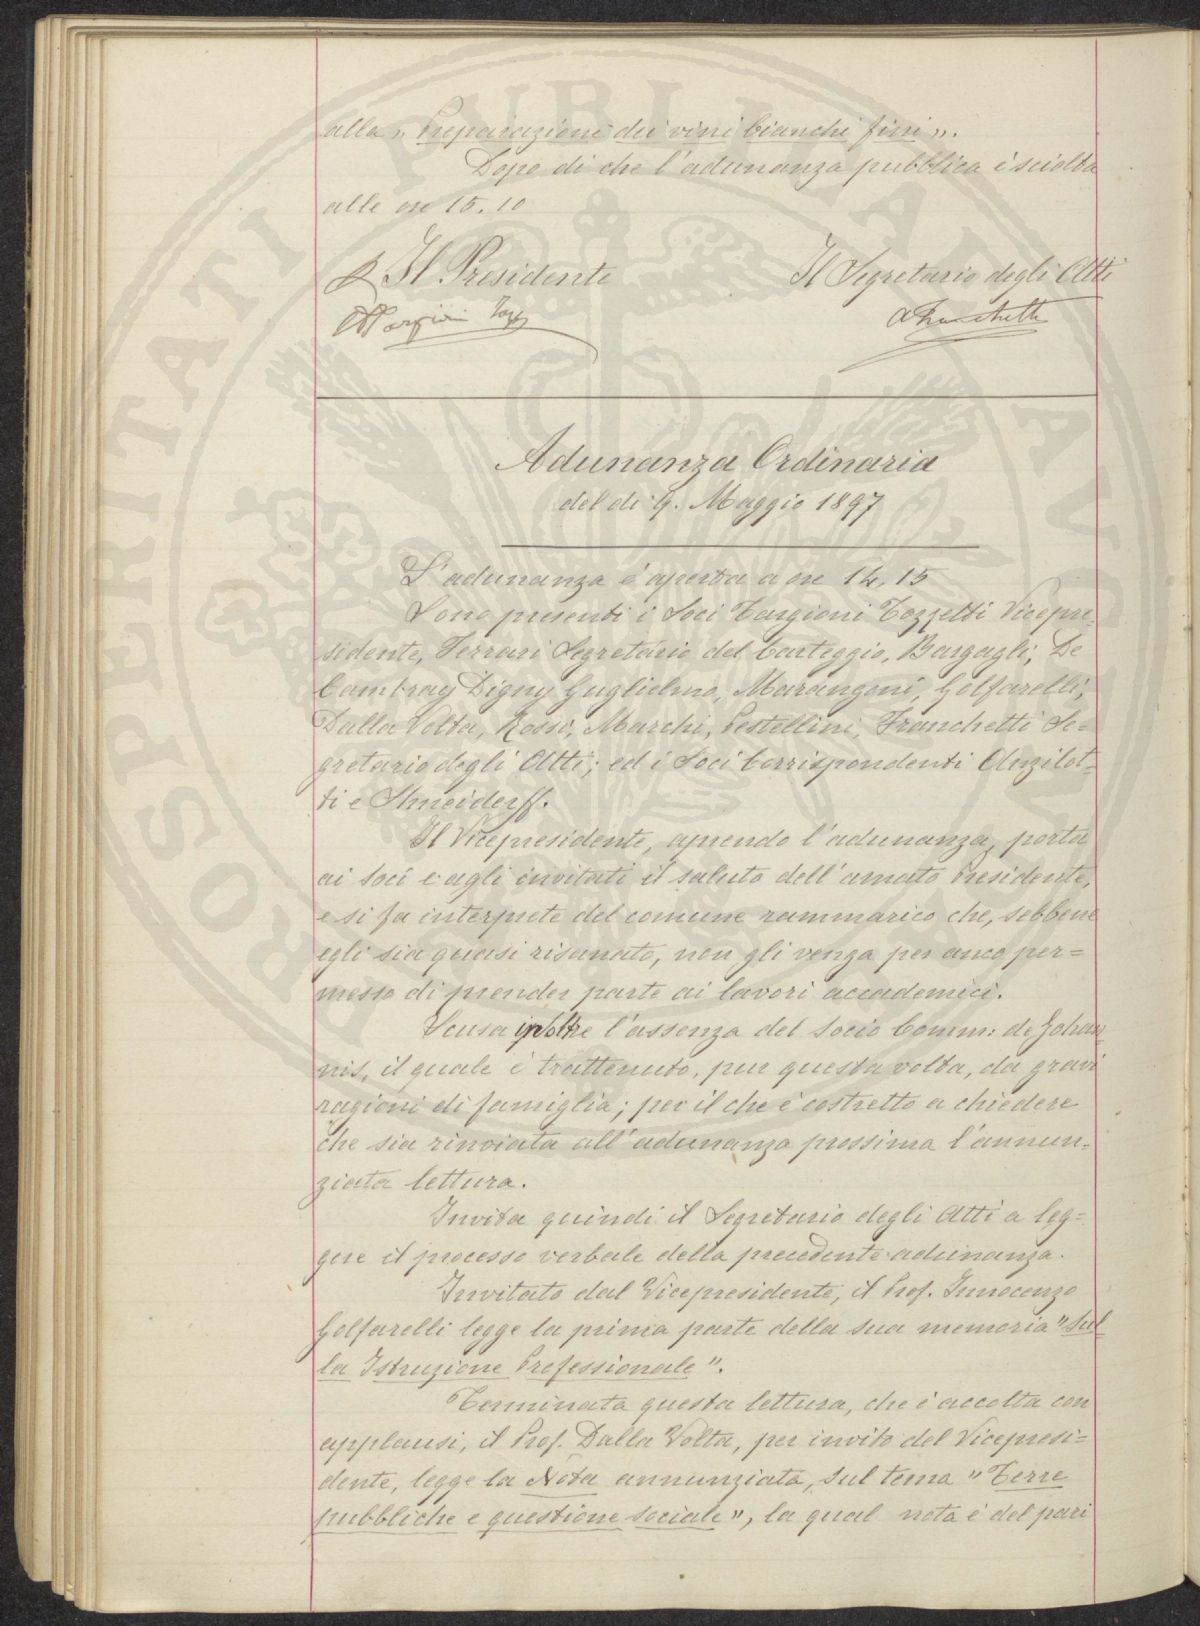 alla „ Preparazione dei vini bianchi fini „.
Dopo di che l'adunanza pubblica è sciolta
alle ore 15.10
Il Presidente
Il Segretario degli Atti
Franchetti
Adunanza Ordinaria
del dì 9. Maggio 1897
L'adunanza è aperta a ore 14,15
Sono presenti i Soci Targioni Tozzetti Vicepre-
sidente, Ferrari Segretario del Carteggio, Bargagli, De
Cambray Digny Guglielmo, Marangoni, Golfarelli,
Dalla Volta, Rossi, Marchi, Pestellini, Franchetti Se=
gretario degli Atti; ed i Soci Corrispondenti Anzilot=
ti e Shneiderff.
Il Vicepresidente, aprendo l'adunanza, porta
ai soci e agli invitati il saluto dell'amato Presidente,
e si fa interprete del comune rammarico che, sebbene
egli sia quasi risanato, non gli venga per anco per=
messo di prender parte ai lavori accademici.
Scusa inoltre l'assenza del socio Comm: de Johan-
nis, il quale è trattenuto, pur questa volta, da gravi
ragioni di famiglia; per il che è costretto a chiedere
che sia rinviata all'adunanza prossima l'annun-
ziata lettura.
Invita quindi il Segretario degli Atti a leg=
gere il processo verbale della precedente adunanza.
Invitato dal Vicepresidente, il Prof. Innocenzo
Golfarelli legge la prima parte della sua memoria "Sul
la Istruzione Professionale".
Terminata questa lettura, che è accolta con
applausi, il Prof. Dalla Volta, per invito del Vicepresi=
dente, legge la Nota annunziata, sul tema "Terre
pubbliche e questione sociale", la qual nota è del pari
PROSPERITATI PUBLICAE AUGENDAE